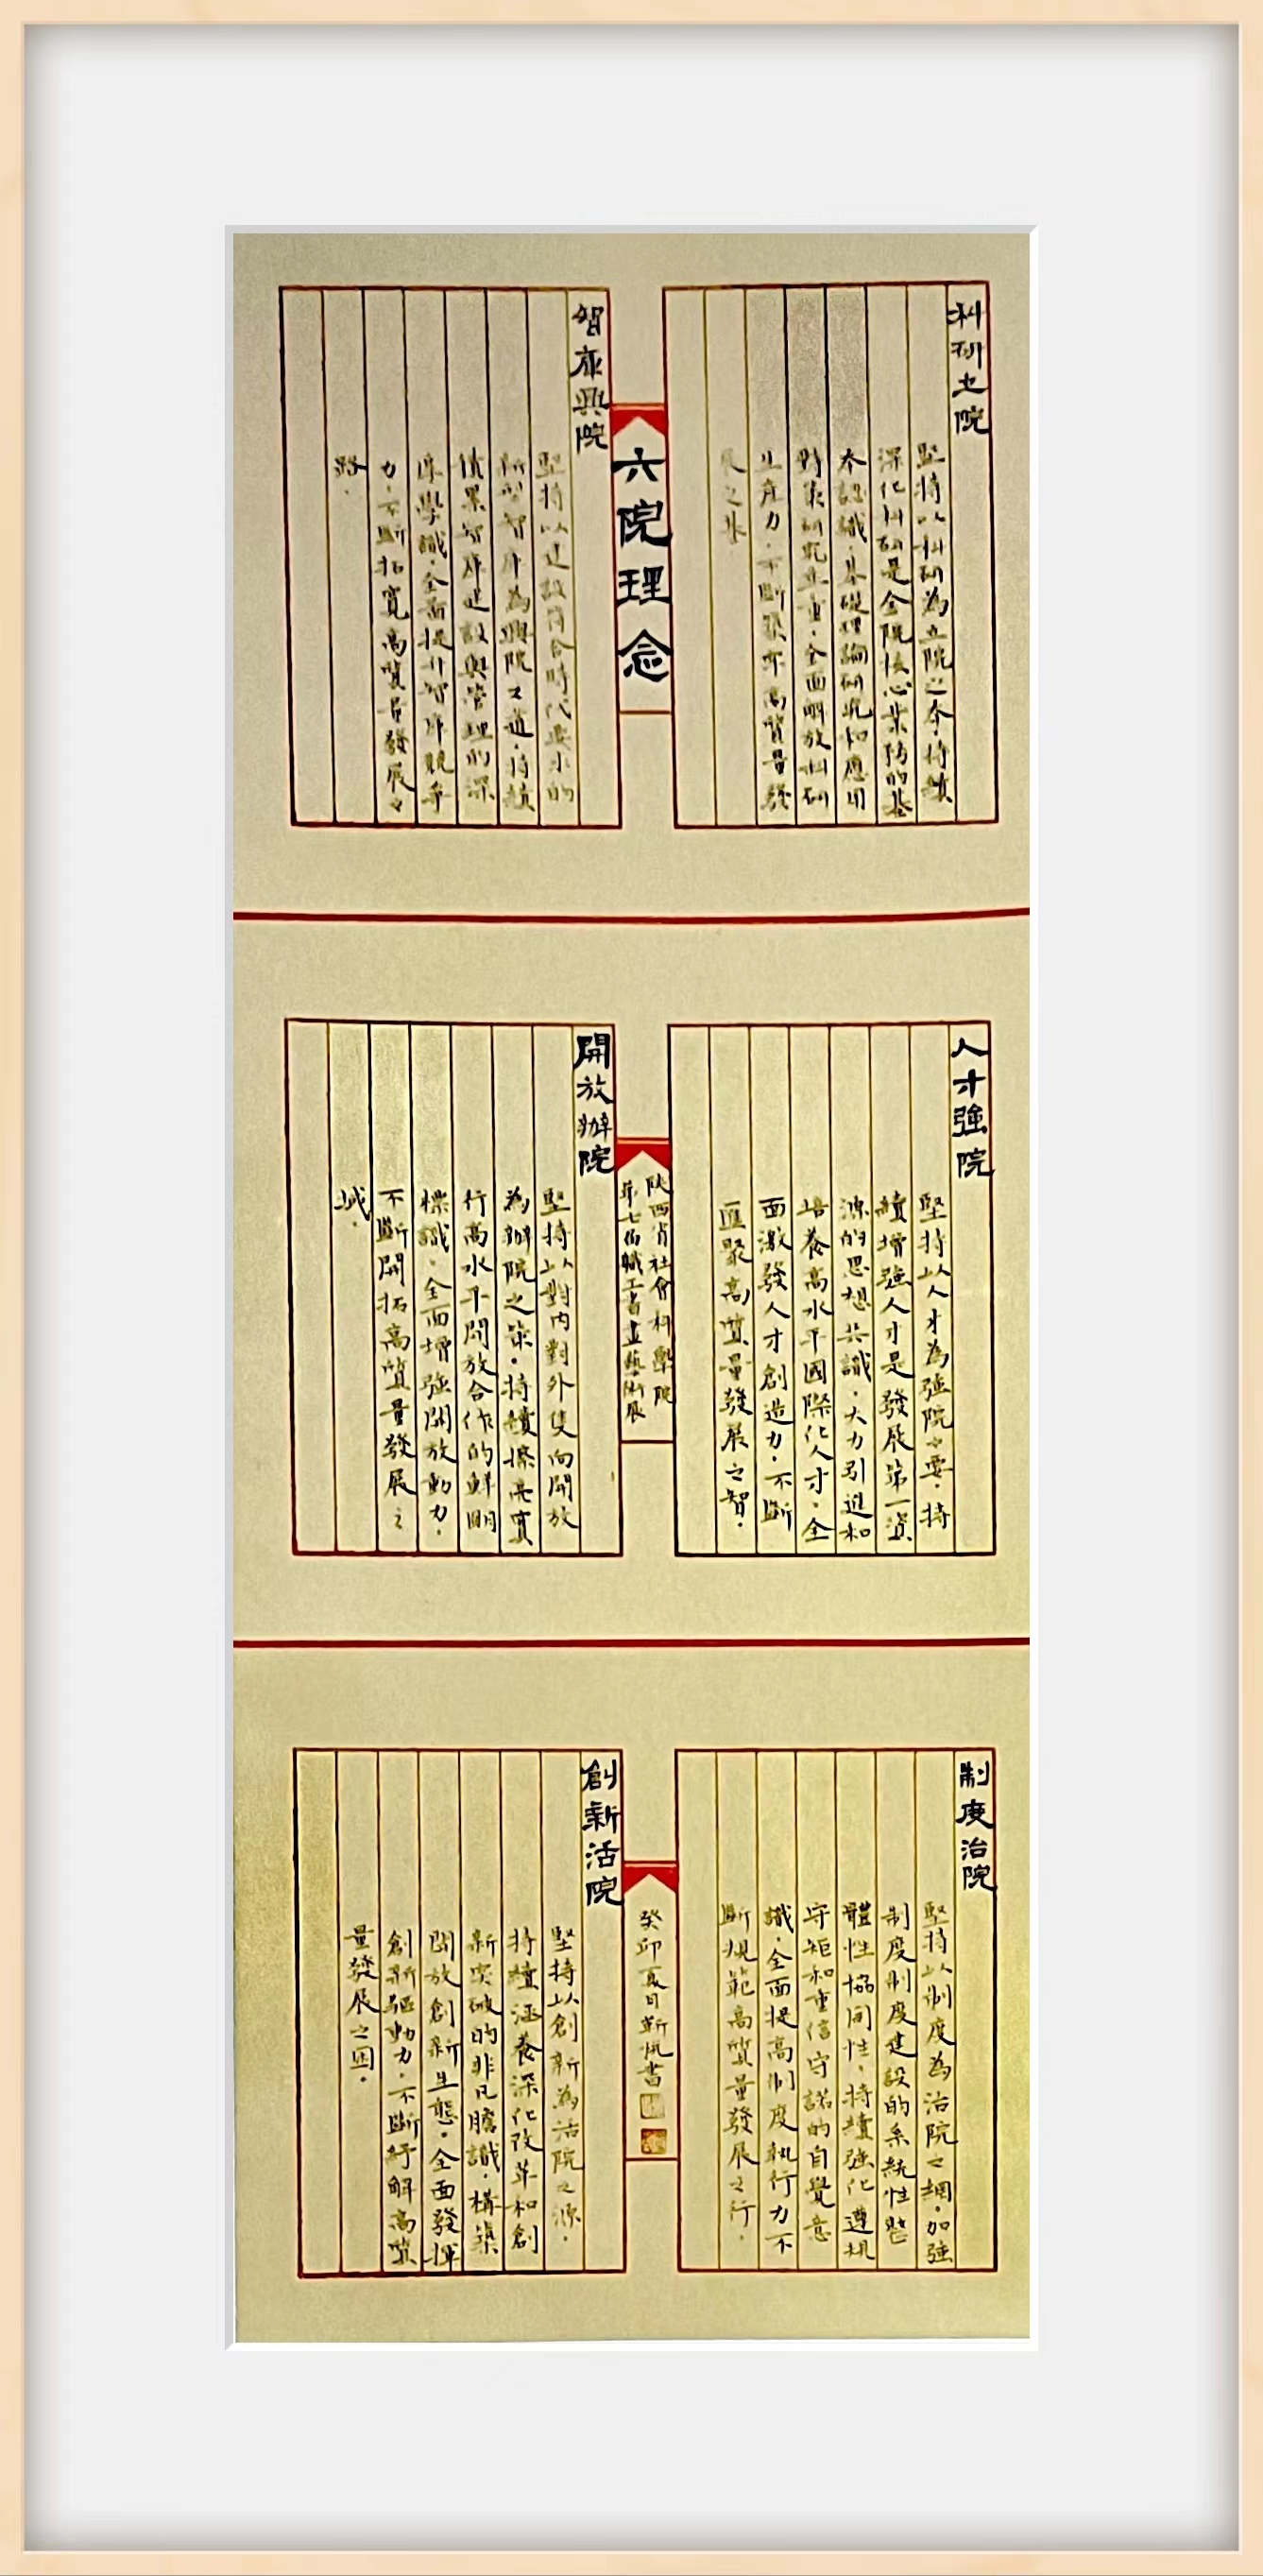 科研立院
堅持以科研為立院之本.持續
深化科研是全院核心業務的基
本認識.基礎理論研究和應用
對策研究並重.全面解放科研
生產力.不斷築牢高質量發
展之基
六院理念
智庫興院
堅持以建設符合時代要求的
新型智庫為興院之道.持續
積累智庫建設與管理的深
厚學識.全面提升智庫競爭
力.不斷拓寬高質量發展之
路.
人才強院
堅持以人才為強院之要.持
續增強人才是發展第一資
源的思想共識.大力引進和
培養高水平國際化人才.全
面激發人才創造力.不斷
匯聚高質量發展之智.
陝西省社會科學院
第七屆職工書畫藝術展
開放辦院
堅持以對內對外雙向開放
為辦院之策.持續擦亮實
行高水平開放合作的鮮明
標識.全面增強開放動力.
不斷開拓高質量發展之
域.
制度治院
堅持以制度為治院之綱.加強
制度制度建設的系統性整
體性協同性.持續強化遵規
守矩和重信守諾的自覺意
識.全面提高制度執行力不
斷規範高質量發展之行.
癸卯夏日靳帆書
創新活院
堅持以創新為活院之源.
持續涵養深化改革和創
新突破的非凡膽識.構築
開放創新生態.全面發揮
創新驅動力.不斷紓解高質
量發展之困.